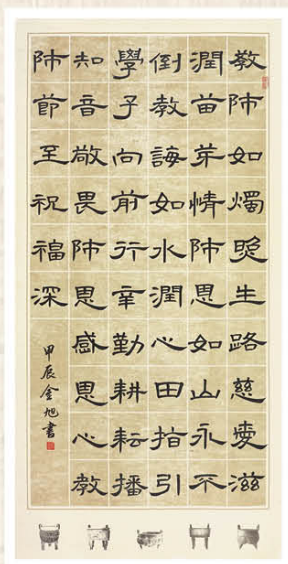 教師如燭照生路慈愛滋
潤苗芽情師恩如山永不
倒教誨如水潤心田指引
學子向前行辛勤耕耘播
知音敬畏師恩感恩心教
師節至祝福深
甲辰金旭書